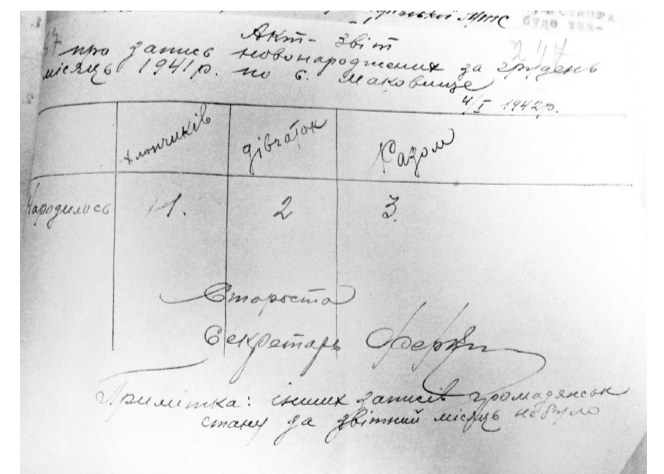 МТС
буде
Акт-звіт
про запис новонароджених за грудень
місяць 1941 р. по с. Маковище
4/I 1942 р.
хлопчиків дівчаток Разом
Народилось 1. 2 3.
Староста
Секретарь
Примітка: інших записів громадянськ
стану за звітний місяць не було